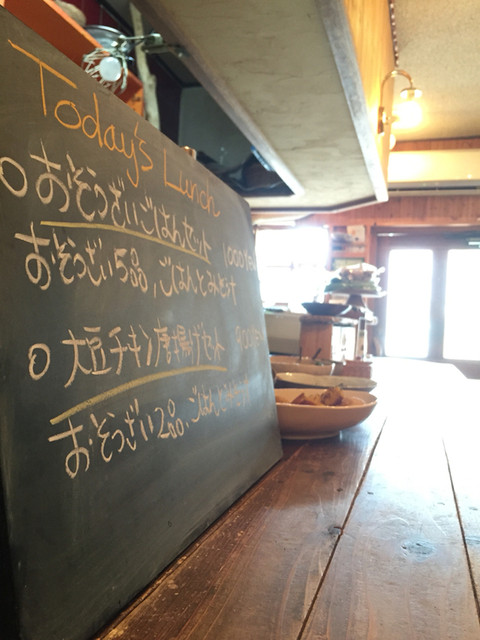 Today's Lunch
○おそうざいごはんセット 1000円
おそうざい5品,ごはんとみそ汁
○大豆チキン唐揚げセット
おそうざい2品,ごはんとみそ汁